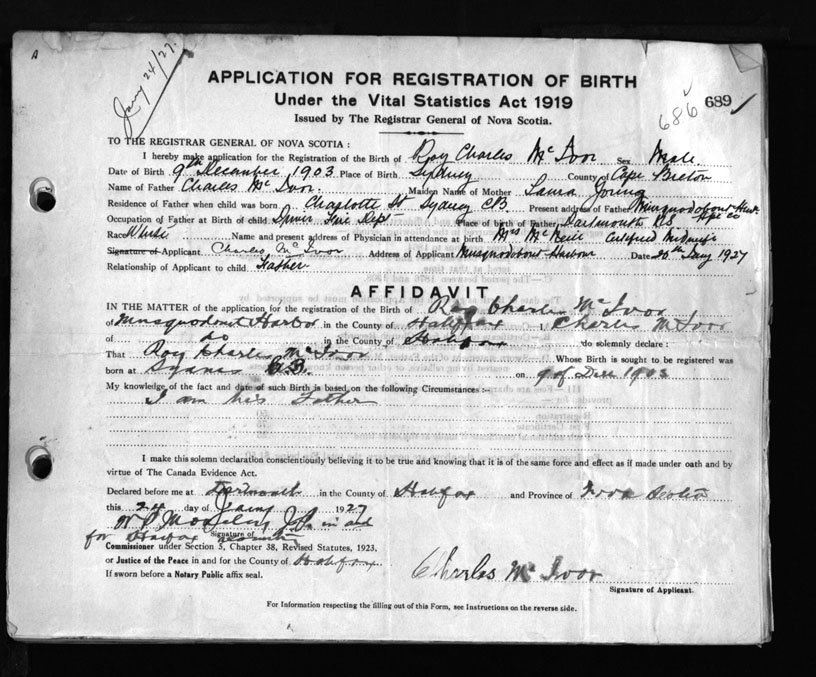 A
Jany 24/27.
APPLICATION FOR REGISTRATION OF BIRTH
Under the Vital Statistics Act 1919
686 689
Issued by The Registrar General of Nova Scotia.
TO THE REGISTRAR GENERAL OF NOVA SCOTIA :
I hereby make application for the Registration of the Birth of Roy Charles Mc Ivor Sex Male
Date of Birth 9th December 1903 Place of Birth Sydney County of Cape Breton
Name of Father Charles Mc Ivor. Maiden Name of Mother Laura Young
Residence of Father when child was born Charlotte St Sydney CB. Present address of Father Musquodoboit Har. Hfx Co
Occupation of Father at Birth of child Driver Fire Dept Place of birth of Father Dartmouth NS
Race White Name and present address of Physician in attendance at birth Mrs McNeil Certified Midwife
Signature of Applicant Charles Mc Ivor Address of Applicant Musquodoboit Harbour Date 20th Jany 1927
Relationship of Applicant to child Father
AFFIDAVIT
IN THE MATTER of the application for the registration of the Birth of Roy Charles Mc Ivor
of Musquodoboit Harbor in the County of Halifax I, Charles McIvor
of do in the County of Halifax do solemnly declare :
That Roy Charles Mc Ivor Whose Birth is sought to be registered was
born at Sydney C.B. on 9 of Dec 1903
My knowledge of the fact and date of such Birth is based on the following Circumstances :-
I am his Father
I make this solemn declaration conscientiously believing it to be true and knowing that it is of the same force and effect as if made under oath and by
virtue of The Canada Evidence Act.
Declared before me at Dartmouth in the County of Halifax and Province of Nova Scotia
this 24 day of Jany 1927
J.P. in and
for Halifax County
Signature of
Commissioner under Section 3, Chapter 38, Revised Statutes, 1923,
or Justice of the Peace in and for the County of Halifax
If sworn before a Notary Public affix seal.
Charles Mc Ivor
Signature of Applicant.
For Information respecting the filling out of this Form, see Instructions on the reverse side.